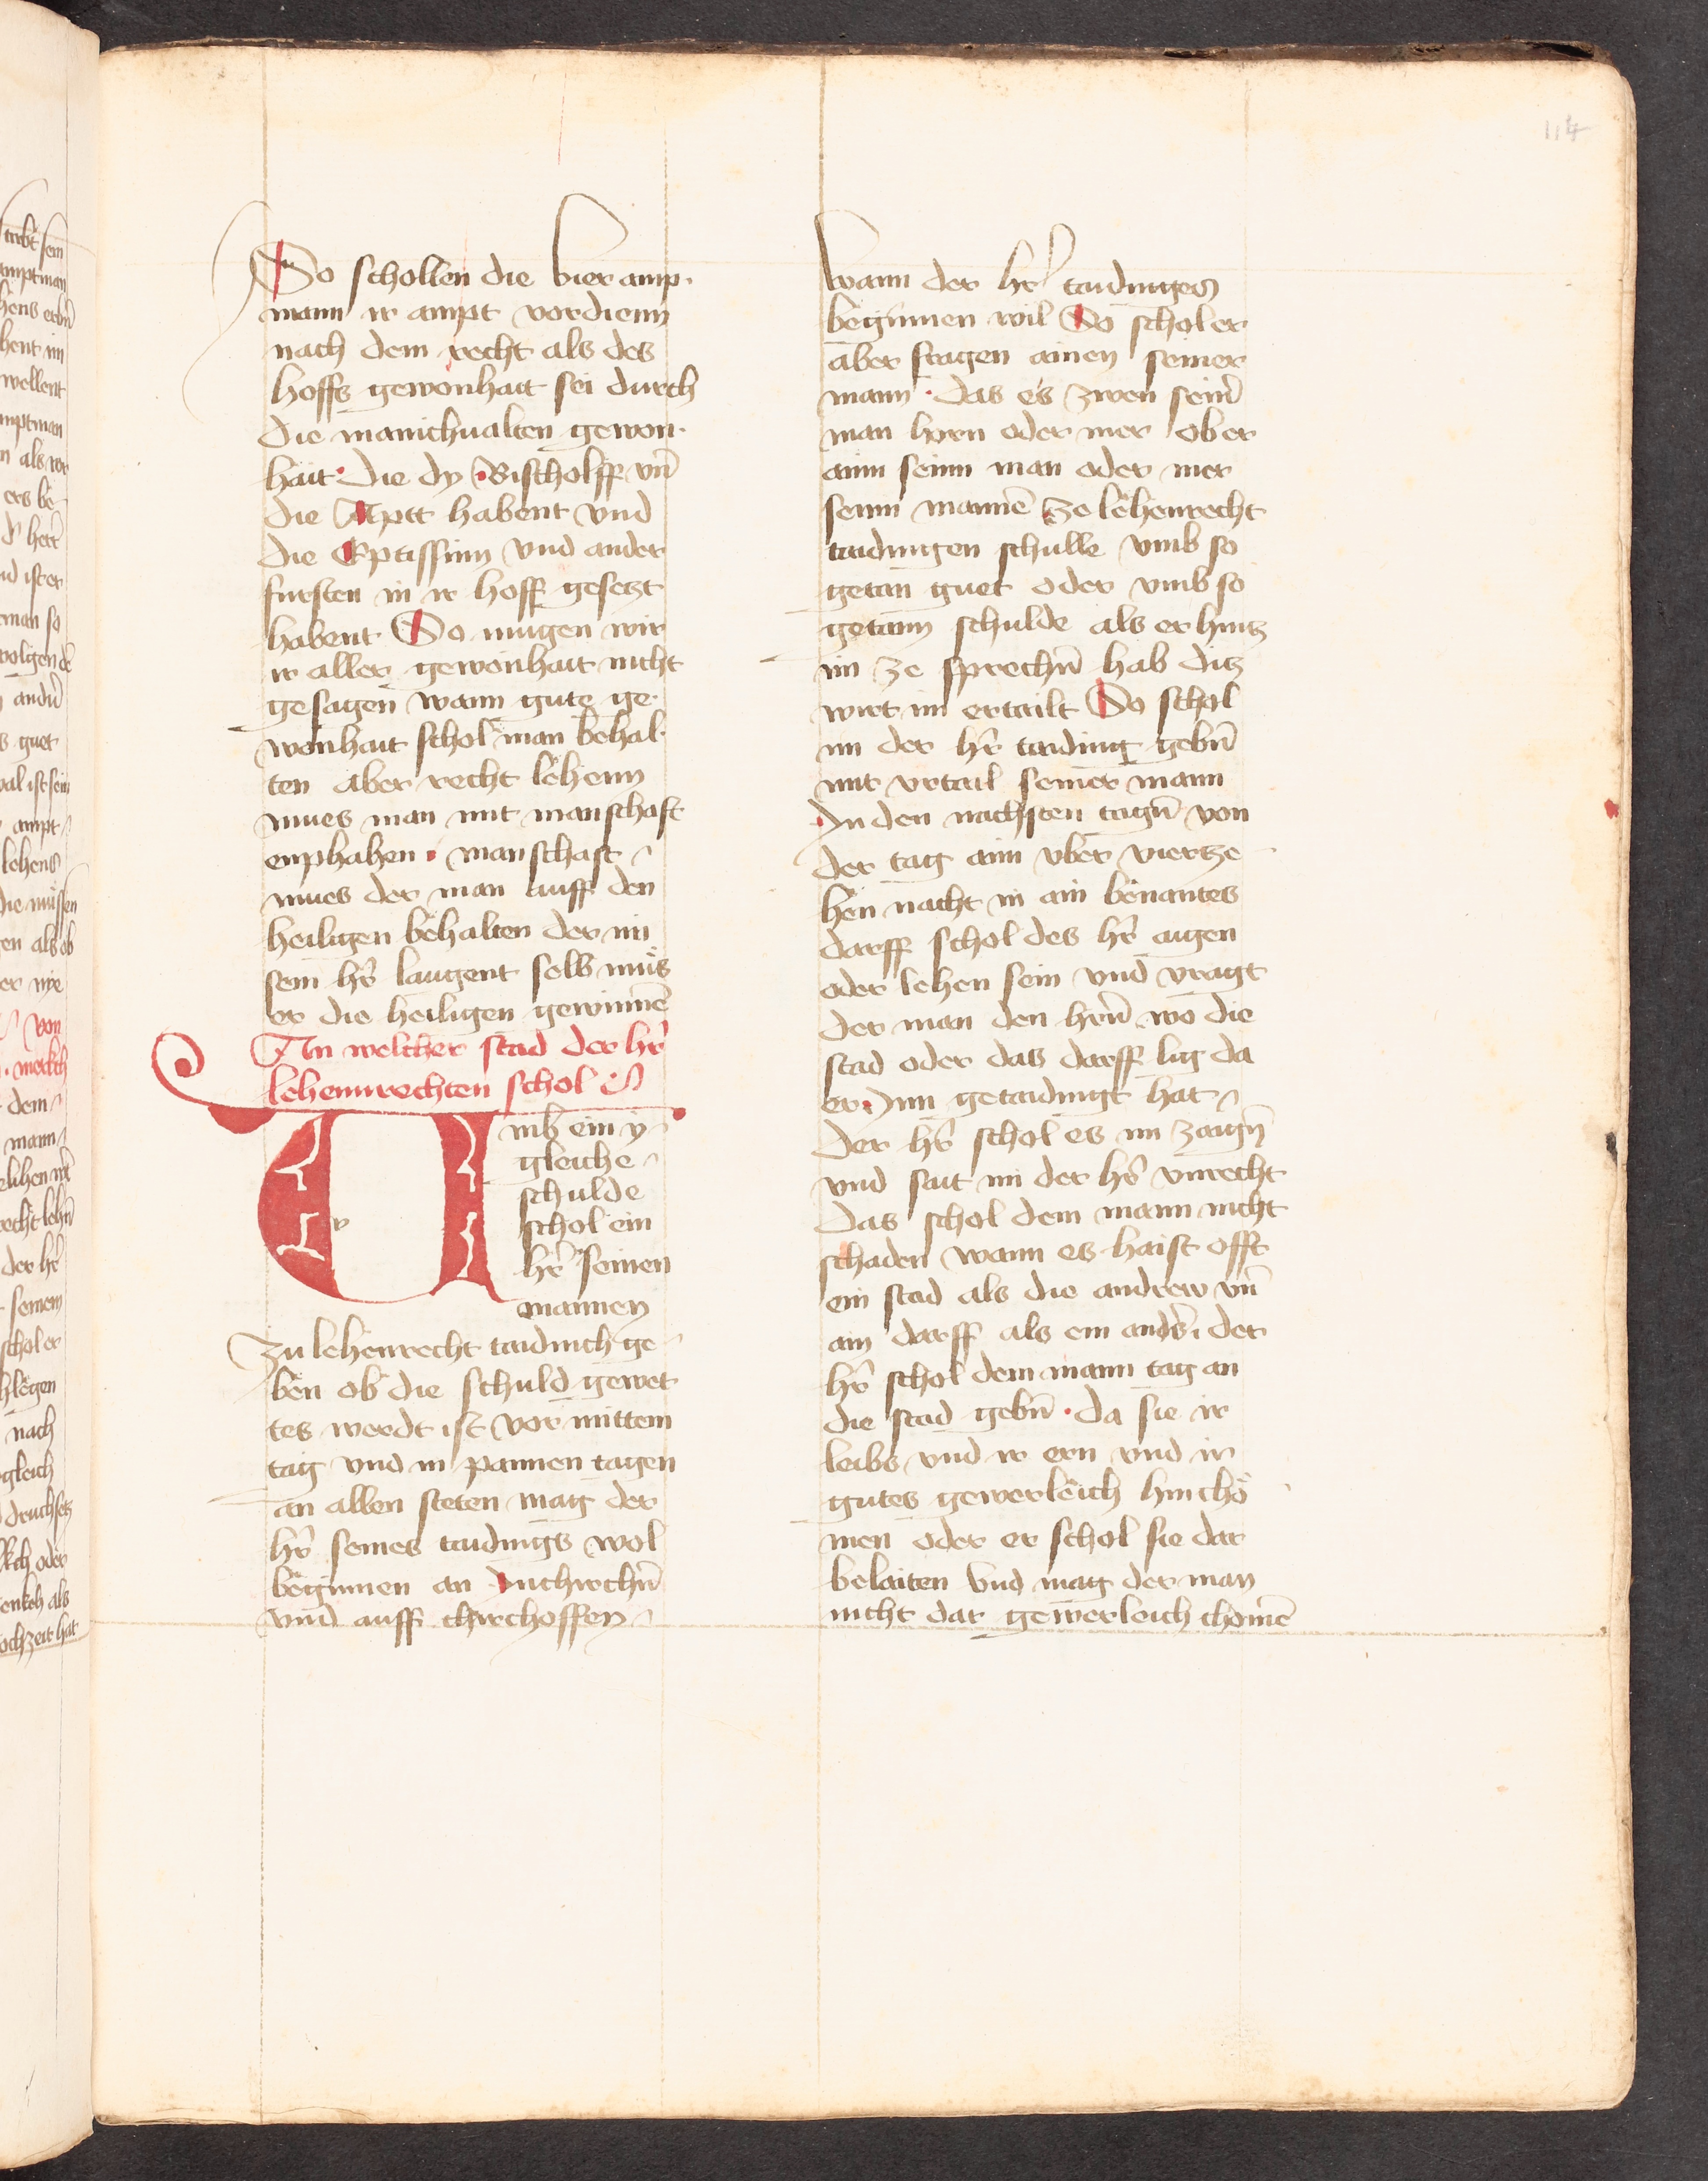 114
So schollen die vier amp¬
mann ir ampt vordienn
nach dem recht als des
hoffs gewonhait sei durch
die manichualten gewon¬
hait · die dy Bischolff vn̄
die Aptt habent vnd
die Eptissinn vnd ander
fursten in ir hoff gesetzt
habent So mugen wir
ir aller gewonhait nicht
gesagen wann gute ge¬
wonhait schol man behal¬
ten aber recht lehenn
mues man mit manschaft
enphahen · manschaft
mues der man auff den
heiligen behalten der im
sein hr̄ laugent selb mus
er die heiligen gewinnē
An welcher stad der hr̄
lehennrechten schol
Vmb ein y
gleiche
schulde
schol ein
hr̄ seinen
mannen
zu lehenrecht taidinch ge
ben ob die schuld gewet
tes werdt ist vor mittem
tag vnd in pannen tagen
an allen steten mag der
hr̄ seines taidings wol
beginnen an Inchirchn̄
vnd auff chirchoffen
wann der hr̄ taidinges
beginnen wil So schol er
aber fragen ainen seiner
mann · das es zwen sein̄
man horn oder mer ob er
ainn seinn man oder mer
seinn mannē ze lehenrecht
taidingen schulle vmb so
getan guet oder vmb so
getann schulde als er hintz
im ze sprechn̄ hab ditz
wirt im ertailt So schol
im der hr̄ taiding gebn̄
mit vrtail seiner mann
In den nachsten tagn̄ von
der tag ainn vber viertze
hen nacht in ain benantes
darff schol des hr̄ aigen
oder lehen sein vnd vragt
der man den hrn̄ wo die
stad oder das darff lig da
er Inn getaidingt hat
der hr̄ schol es im zaign̄
vnd sait im der hr̄ vnrecht
das schol dem mann nicht
schaden wann es haist offt
ein stad als die andrew vn̄
ain darff als ein anders̄ der
hr̄ schol dem mann tag an
die stad gebn̄ · da sie ir
leibs vnd ir ern vnd ir
gutes gewerleich hin cho
men oder er schol sie dar
belaiten Vnd mag der man
nicht dar gewerleich chomē